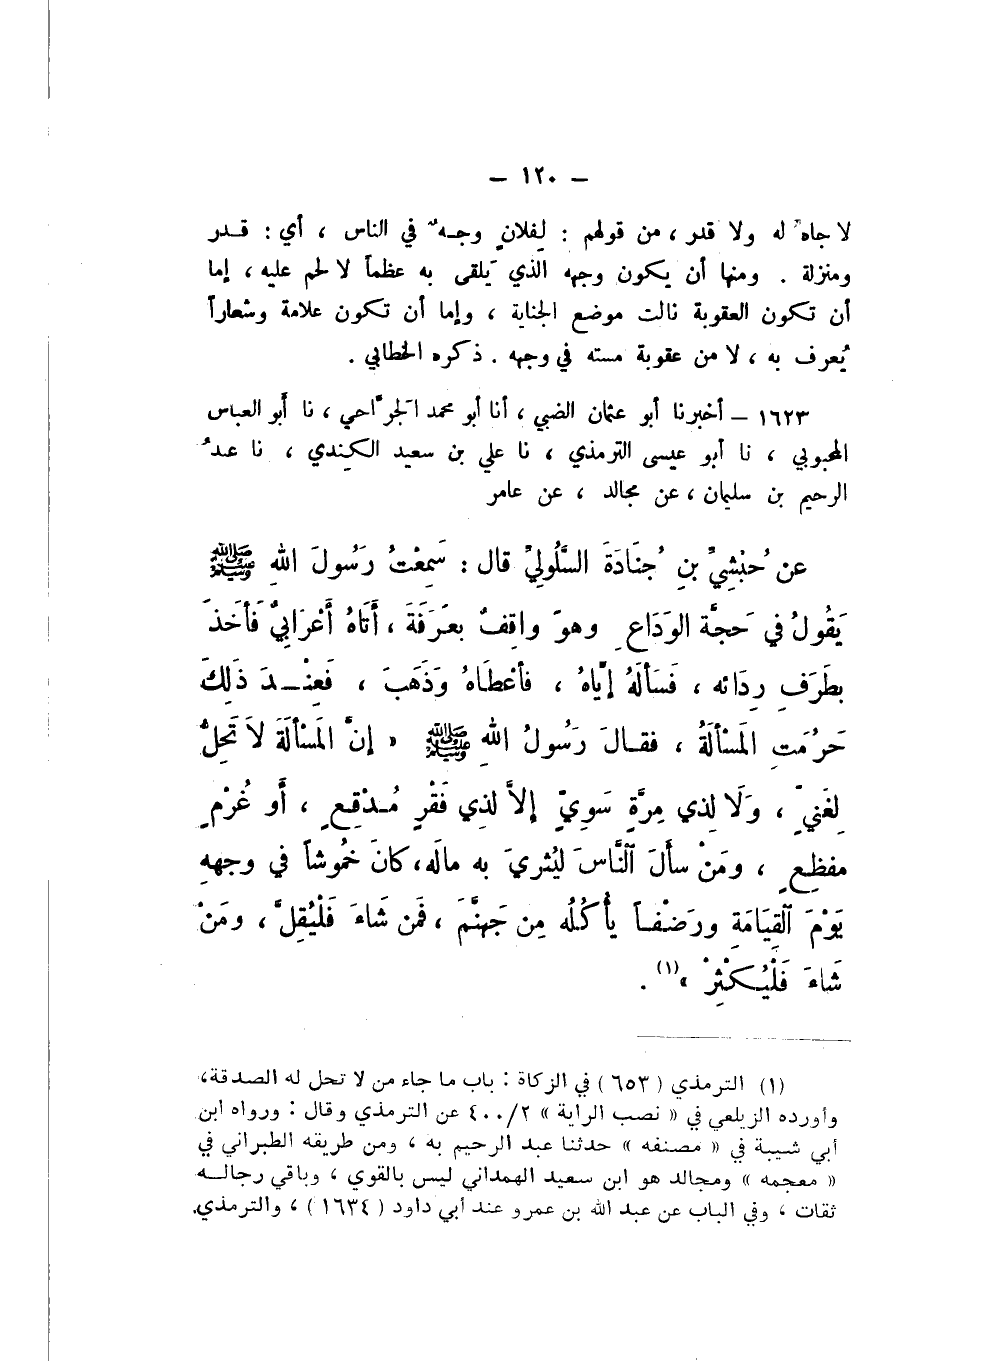 – ١٢٠ –
لا جاهَ له ولا قدر ، من قولهم : لِفلانٍ وجهٌ في الناس ، أي : قدر
ومنزلة . ومنها أن يكون وجهه الذي يَلقى به عظماً لا لحم عليه ، إما
أن تكون العقوبة نالت موضع الجناية ، وإما أن تكون علامة وشعاراً
يُعرف به ، لا من عقوبة مسته في وجهه . ذكره الخطابي .
١٦٢٣ – أخبرنا أبو عثمان الضبي ، أنا أبو محمد الجَرَّاحي ، نا أبو العباس
المحبوبي ، نا أبو عيسى الترمذي ، نا علي بن سعيد الكِندي ، نا عبدُ
الرحيم بن سليمان ، عن مجالد ، عن عامر
عن حُبْشِيِّ بنِ جُنَادَةَ السَّلُوليِّ قال : سَمِعْتُ رَسُولَ اللهِ ﷺ
يَقُولُ في حَجَّة الوَدَاعِ وهوَ واقِفٌ بعَرَفَةَ ، أَتَاهُ أَعْرَابيٌّ فَأَخَذَ
بطَرَفِ رِدَائه ، فَسَألَهُ إيَّاهُ ، فأعْطَاهُ وَذَهَبَ ، فَعِنْدَ ذَلِكَ
حَرُمَتِ المَسْألَةُ ، فقالَ رَسُولُ اللهِ ﷺ « إنَّ المَسْألَةَ لاَ تَحِلُّ
لِغَنيٍّ ، وَلَا لِذي مِرَّةٍ سَوِيٍّ إلاَّ لذي فَقْرٍ مُدْقِعٍ ، أَو غُرْمٍ
مفظِعٍ ، ومَنْ سأَلَ ٱلنَّاسَ ليُثريَ به مالَه، كانَ خُمُوشاً في وجههِ
يَوْمَ ٱلقِيَامَةِ ورَضْفاً يأْكُلُه مِن جَهنَّمَ ، فَمَن شَاءَ فَلْيُقِلَّ ، ومَنْ
شَاءَ فَلْيُكْثِرْ »(١) .
(١) الترمذي ( ٦٥٣ ) في الزكاة : باب ما جاء من لا تحل له الصدقة ،
وأورده الزيلعي في « نصب الراية » ٤٠٠/٢ عن الترمذي وقال : ورواه ابن
أبي شيبة في « مصنفه » حدثنا عبد الرحيم به ، ومن طريقه الطبراني في
« معجمه » ومجالد هو ابن سعيد الهمداني ليس بالقوي ، وباقي رجاله
ثقات ، وفي الباب عن عبد الله بن عمرو عند أبي داود ( ١٦٣٤ ) ، والترمذي.